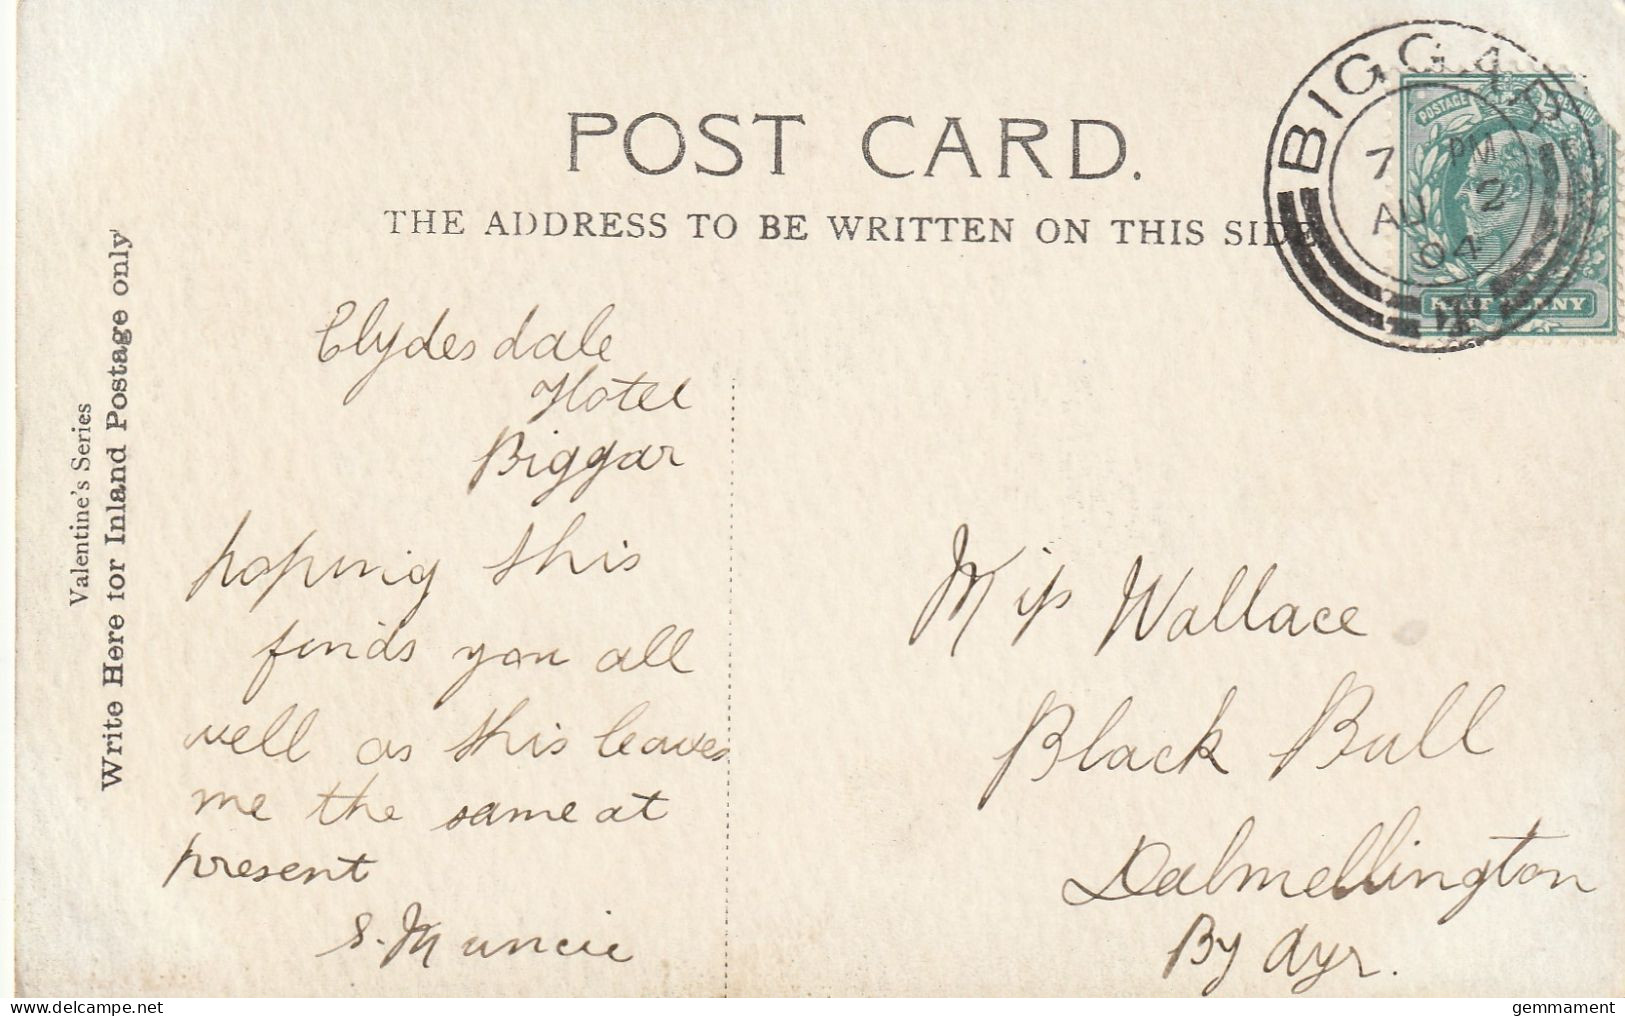 POST CARD.
THE ADDRESS TO BE WRITTEN ON THIS SIDE
Valentine's Series
Write Here for Inland Postage only
BIGGAR
7 PM
AU 2
04
POSTAGE & REVENUE
HALFPENNY
Clydesdale
Hotel
Biggar
hoping this
finds you all
well as this leaves
me the same at
present
S. Muncie
Miss Wallace
Black Bull
Dalmellington
By Ayr.
delcampe.net
gemmament